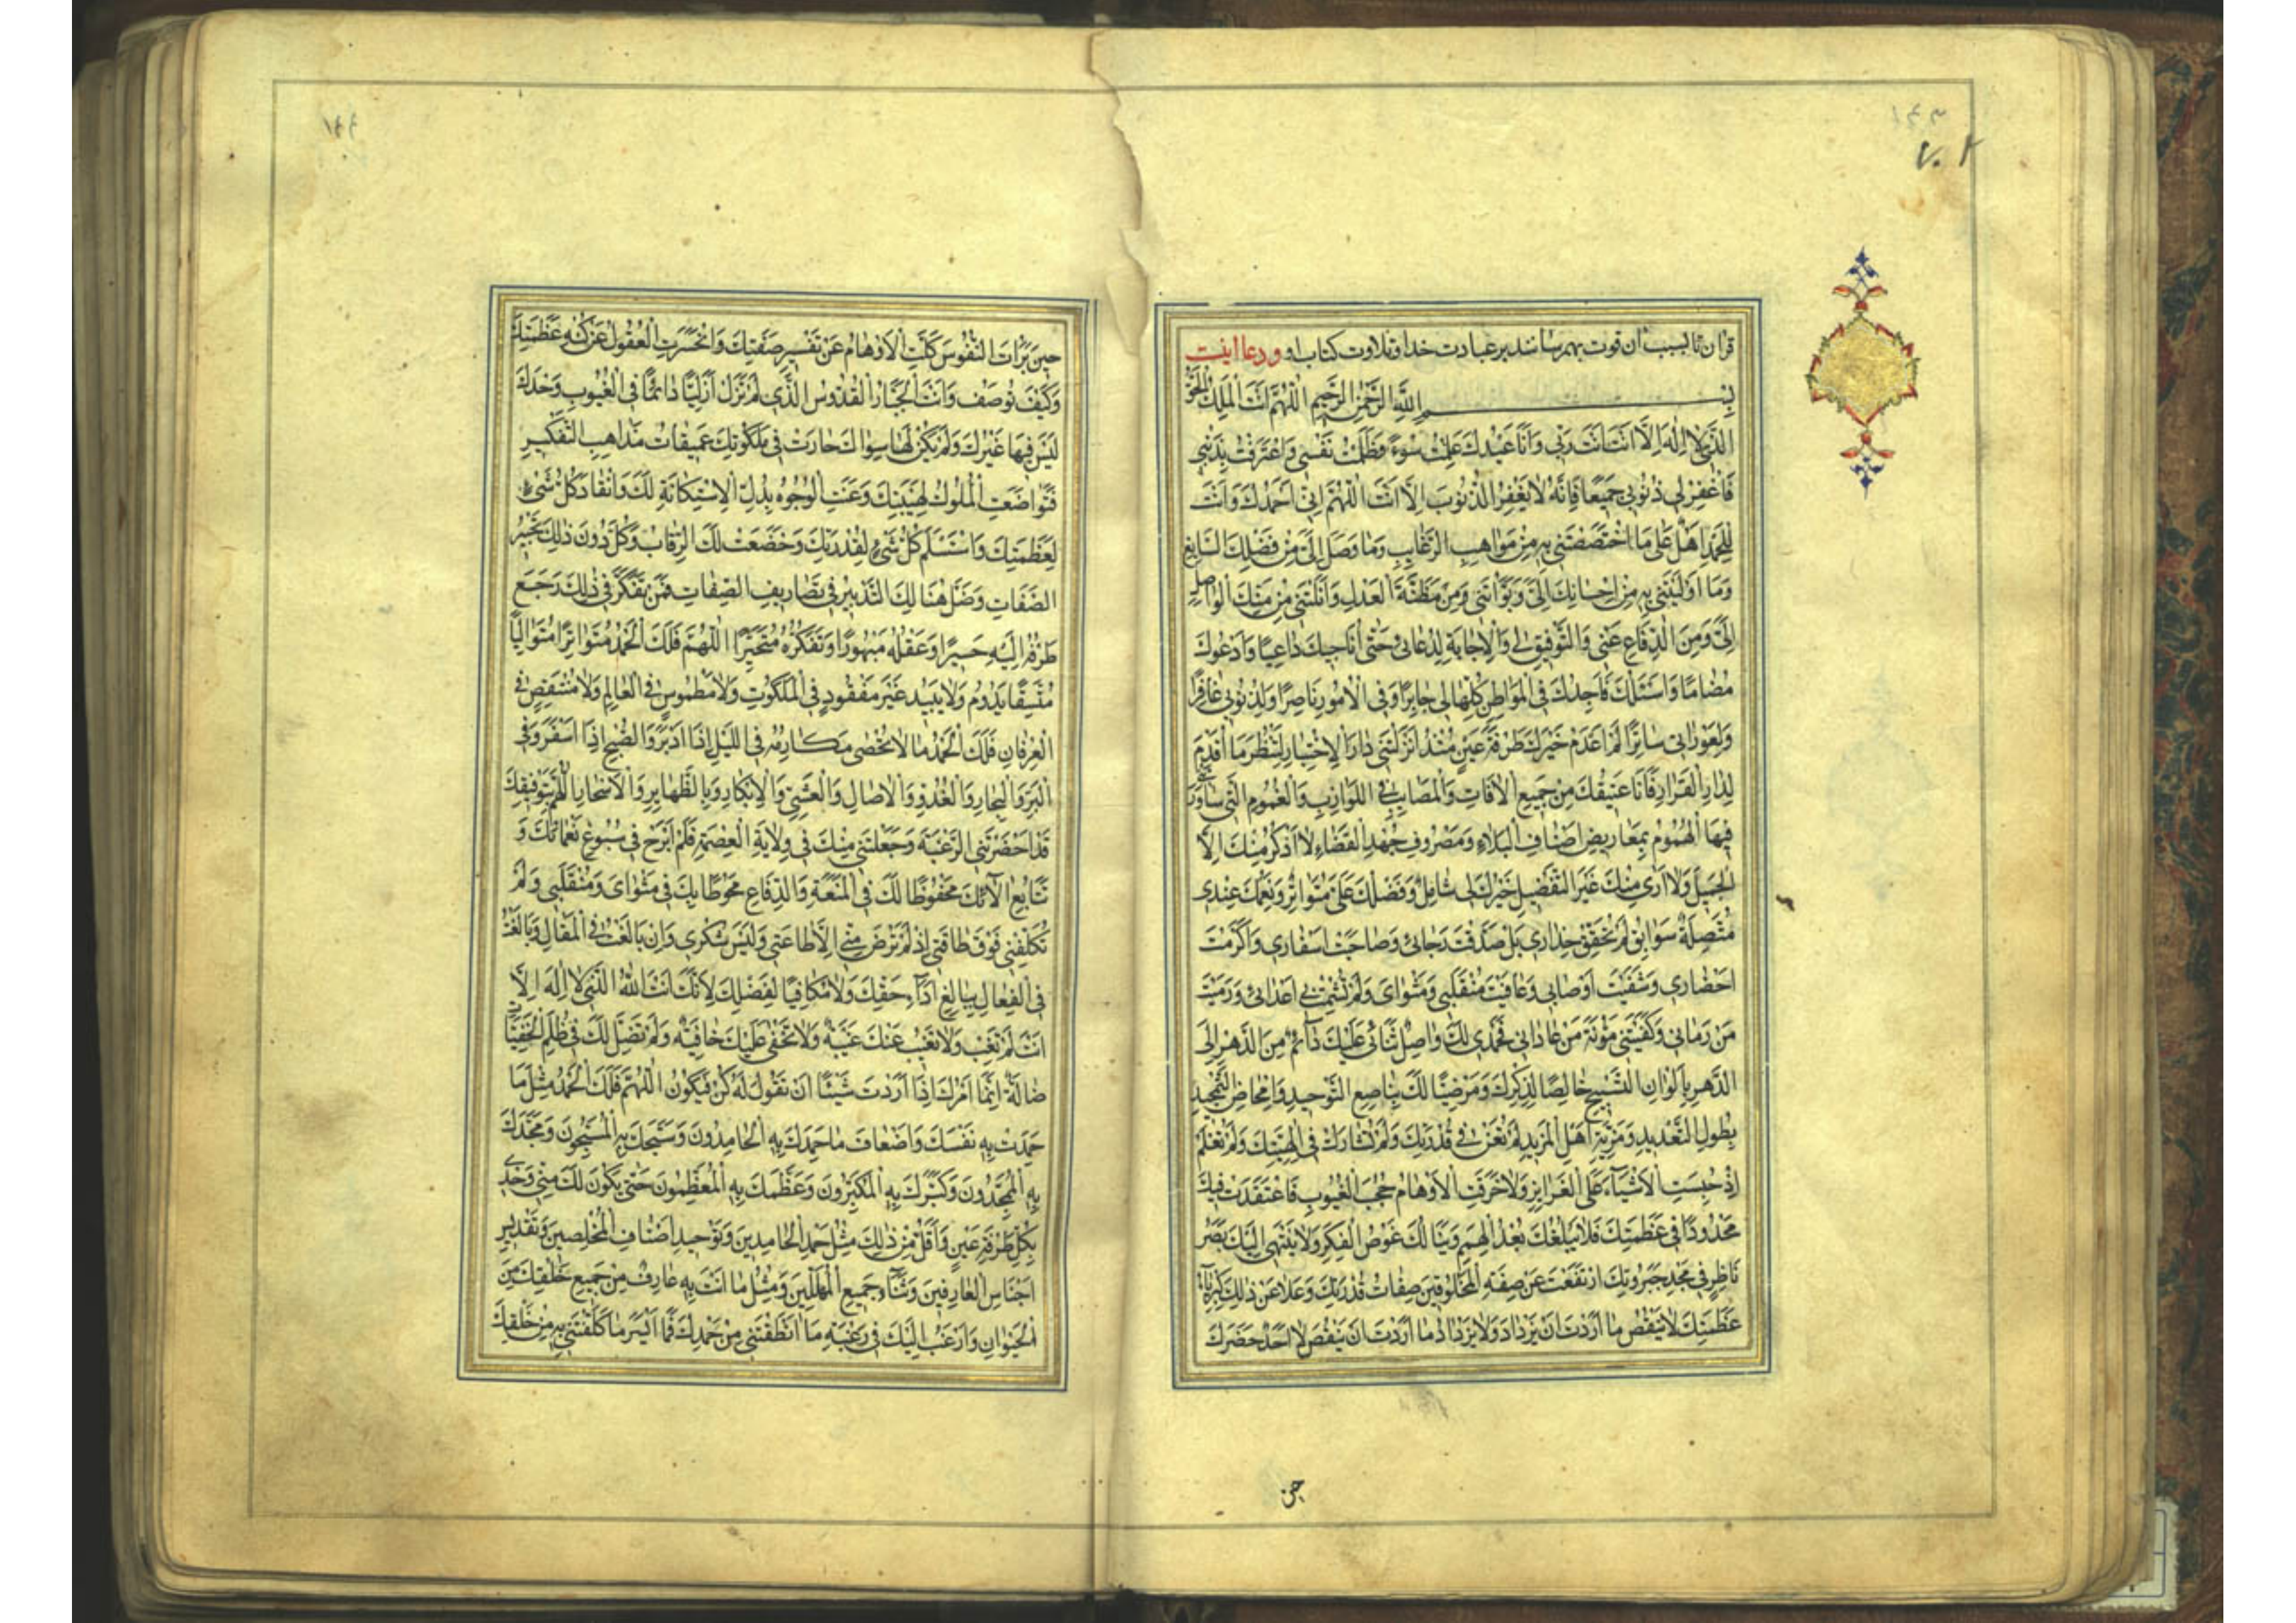 ١٤٣
٧٠٢
قرآن تا بسبب آن قوت بهم رسانند بر عبادت خدا و تلاوت کتاب او و دعا اینست
بِسْمِ اللَّهِ الرَّحْمٰنِ الرَّحِيمِ اَللّٰهُمَّ اَنْتَ الْمَلِكُ الْحَقُّ
الَّذى لا اِلٰهَ اِلّا اَنْتَ اَنْتَ رَبّى وَاَنَا عَبْدُكَ عَمِلْتُ سُوءً وَظَلَمْتُ نَفْسى وَاعْتَرَفْتُ بِذَنْبى
فَاغْفِرْلى ذُنُوبى جَميعًا فَاِنَّهُ لا يَغْفِرُ الذُّنُوبَ اِلّا اَنْتَ اَللّٰهُمَّ اِنّى اَحْمَدُكَ وَاَنْتَ
لِلْحَمْدِ اَهْلٌ عَلىٰ مَا اخْتَصَصْتَنى بِهِ مِنْ مَوٰاهِبِ الرَّغٰايِبِ وَمٰا وَصَلَ اِلَىَّ مِنْ فَضْلِكَ السّٰابِغِ
وَمٰا اَوْلَيْتَنى بِهِ مِنْ اِحْسٰانِكَ اِلَىَّ وَبَوَّاْتَنى وَمِنْ مَظَنَّةَ الْعَدْلِ وَاَنَلْتَنى مِنْ مَنِّكَ الْوٰاصِلِ
اِلَىَّ وَمِنَ الدِّفٰاعِ عَنّى وَالتَّوْفيقِ لى وَالْاِجٰابَةِ لِدُعٰائى حَتّٰى اُنٰاجيكَ دٰاعِيًا وَاَدْعُوكَ
مُضٰامًا وَاَسْئَلُكَ فَاَجِدُكَ فِى الْمَوٰاطِنِ كُلِّهٰا لى جٰابِرًا وَفِى الْاُمُورِ نٰاصِرًا وَلِذُنُوبى غٰافِرًا
وَلِعَوْرٰاتى سٰاتِرًا لَمْ اَعْدَمْ خَيْرَكَ طَرْفَةَ عَيْنٍ مُنْذُ اَنْزَلْتَنى دٰارَ الْاِخْتِبٰارِ لِتَنْظُرَ مٰا اُقَدِّمُ
لِدٰارِ الْقَرٰارِ فَاَنَا عَتيقُكَ مِنْ جَميعِ الْاٰفٰاتِ وَالْمَصٰائِبِ فِى اللَّوٰازِبِ وَالْغُمُومِ الَّتى سٰاوَرَتْنى
فيهَا الْهُمُومُ بِمَعٰاريضِ اَصْنٰافِ الْبَلٰاءِ وَمَصْرُوفِ جُهْدِ الْقَضٰاءِ لا اَذْكُرُ مِنْكَ اِلَّا
الْجَميلَ وَلا اَرىٰ مِنْكَ غَيْرَ التَّفْضيلِ خَيْرُكَ لى شٰامِلٌ وَفَضْلُكَ عَلَىَّ مُتَوٰاتِرٌ وَنِعَمُكَ عِنْدى
مُتَّصِلَةٌ سَوٰابِقُ لَمْ تُحَقِّقْ حِذٰارى بَلْ صَدَّقْتَ رَجٰائى وَصٰاحَبْتَ اَسْفٰارى وَاَكْرَمْتَ
اَحْضٰارى وَشَفَيْتَ اَوْصٰابى وَعٰافَيْتَ مُنْقَلَبى وَمَثْوٰاىَ وَلَمْ تُشْمِتْ بى اَعْدٰائى وَرَمَيْتَ
مَنْ رَمٰانى وَكَفَيْتَنى مَؤُنَةَ مَنْ عٰادٰانى فَحَمْدى لَكَ وٰاصِلٌ ثَنٰائى عَلَيْكَ دٰائِمٌ مِنَ الدَّهْرِ اِلَى
الدَّهْرِ بِاَلْوٰانِ التَّسْبيحِ خٰالِصًا لِذِكْرِكَ وَمَرْضِيًّا لَكَ بِنٰاصِعِ التَّوْحيدِ وَاِمْحٰاضِ التَّمْجيدِ
بِطُولِ التَّعْديدِ وَمَزِيَّةِ اَهْلِ الْمَزيدِ لَمْ تُعَنْ فى قُدْرَتِكَ وَلَمْ تُشٰارَكْ فى اِلٰهِيَّتِكَ وَلَمْ تُعْلَمْ
اِذْ حَبَسْتَ الْاَشْيٰاءَ عَلَى الْغَرٰايِزِ وَلا خَرَقَتِ الْاَوْهٰامُ حُجُبَ الْغُيُوبِ فَاعْتَقَدَتْ فيكَ
مَحْدُودًا فى عَظَمَتِكَ فَلا يَبْلُغُكَ بُعْدُ الْهِمَمِ وَيَنٰالُكَ غَوْصُ الْفِكَرِ وَلا يَنْتَهى اِلَيْكَ بَصَرُ
نٰاظِرٍ فى مَجْدِ جَبَرُوتِكَ ارْتَفَعَتْ عَنْ صِفَةِ الْمَخْلُوقينَ صِفٰاتُ قُدْرَتِكَ وَعَلا عَنْ ذٰلِكَ كِبْرِيٰاءُ
عَظَمَتِكَ لا يَنْقُصُ مٰا اَرَدْتَ اَنْ يَزْدٰادَ وَلا يَزْدٰادُ مٰا اَرَدْتَ اَنْ يَنْقُصَ لا اَحَدٌ حَضَرَكَ
حين
١٤٤
حينَ بَرَاْتَ النُّفُوسَ كَلَّتِ الْاَوْهٰامُ عَنْ تَفْسيرِ صِفَتِكَ وَانْحَسَرَتِ الْعُقُولُ عَنْ كُنْهِ عَظَمَتِكَ
وَكَيْفَ تُوصَفُ وَاَنْتَ الْجَبّٰارُ الْقُدُّوسُ الَّذى لَمْ تَزَلْ اَزَلِيًّا دٰائِمًا فِى الْغُيُوبِ وَحْدَكَ
لَيْسَ فيهٰا غَيْرُكَ وَلَمْ يَكُنْ لَهٰا سِوٰاكَ حٰارَتْ فى مَلَكُوتِكَ عَميقٰاتُ مَذٰاهِبِ التَّفْكيرِ
فَتَوٰاضَعَتِ الْمُلُوكُ لِهَيْبَتِكَ وَعَنَتِ الْوُجُوهُ بِذِلَّةِ الْاِسْتِكٰانَةِ لَكَ وَانْقٰادَ كُلُّ شَىْءٍ
لِعَظَمَتِكَ وَاسْتَسْلَمَ كُلُّ شَىْءٍ لِقُدْرَتِكَ وَخَضَعَتْ لَكَ الرِّقٰابُ وَكَلَّ دُونَ ذٰلِكَ تَحْبيرُ
الصِّفٰاتِ وَضَلَّ هُنٰالِكَ التَّدْبيرُ فى تَصٰاريفِ الصِّفٰاتِ فَمَنْ تَفَكَّرَ فى ذٰلِكَ رَجَعَ
طَرْفُهُ اِلَيْهِ حَسيرًا وَعَقْلُهُ مَبْهُورًا وَتَفَكُّرُهُ مُتَحَيِّرًا اَللّٰهُمَّ فَلَكَ الْحَمْدُ مُتَوٰاتِرًا مُتَوٰالِيًا
مُتَّسِقًا يَدُومُ وَلا يَبيدُ غَيْرَ مَفْقُودٍ فِى الْمَلَكُوتِ وَلا مَطْمُوسٍ فِى الْعٰالَمِ وَلا مُنْتَقَصٍ فِى
الْعِرْفٰانِ فَلَكَ الْحَمْدُ مٰا لا تُحْصىٰ مَكٰارِمُهُ فِى اللَّيْلِ اِذٰا اَدْبَرَ وَالصُّبْحِ اِذٰا اَسْفَرَ وَفِى
الْبَرِّ وَالْبِحٰارِ وَالْغُدُوِّ وَالْاٰصٰالِ وَالْعَشِىِّ وَالْاِبْكٰارِ وَبِالظَّهٰايِرِ وَالْاَسْحٰارِ اَللّٰهُمَّ بِتَوْفيقِكَ
قَدْ اَحْضَرْتَنِى الرَّغْبَةَ وَجَعَلْتَنى مِنْكَ فى وِلايَةِ الْعِصْمَةِ فَلَمْ اَبْرَحْ فى سُبُوغِ نَعْمٰائِكَ وَ
تَتٰابُعِ اٰلٰائِكَ مَحْفُوظًا لَكَ فِى الْمَنَعَةِ وَالدِّفٰاعِ مَحُوطًا بِكَ فى مَثْوٰاىَ وَمُنْقَلَبى وَلَمْ
تُكَلِّفْنى فَوْقَ طٰاقَتى اِذْ لَمْ تَرْضَ مِنّى اِلّا طٰاعَتى وَلَيْسَ شُكْرى وَاِنْ بٰالَغْتُ فِى الْمَقٰالِ وَبٰالَغْتُ
فِى الْفِعٰالِ بِبٰالِغِ اَدٰاءِ حَقِّكَ وَلا مُكٰافِيًا لِفَضْلِكَ لِاَنَّكَ اَنْتَ اللّٰهُ الَّذى لا اِلٰهَ اِلّا
اَنْتَ لَمْ تَغِبْ وَلا تَغيبُ عَنْكَ غٰيِبَةٌ وَلا تَخْفىٰ عَلَيْكَ خٰافِيَةٌ وَلَمْ تَضِلَّ لَكَ فى ظُلَمِ الْخَفِيّٰاتِ
ضٰالَّةٌ اِنَّمٰا اَمْرُكَ اِذٰا اَرَدْتَ شَيْئًا اَنْ تَقُولَ لَهُ كُنْ فَيَكُونُ اَللّٰهُمَّ فَلَكَ الْحَمْدُ مِثْلَ مٰا
حَمِدْتَ بِهِ نَفْسَكَ وَاَضْعٰافَ مٰا حَمِدَكَ بِهِ الْحٰامِدُونَ وَسَبَّحَكَ بِهِ الْمُسَبِّحُونَ وَمَجَّدَكَ
بِهِ الْمُمَجِّدُونَ وَكَبَّرَكَ بِهِ الْمُكَبِّرُونَ وَعَظَّمَكَ بِهِ الْمُعَظِّمُونَ حَتّٰى يَكُونَ لَكَ مِنّى وَحْدى
بِكُلِّ طَرْفَةِ عَيْنٍ وَاَقَلَّ مِنْ ذٰلِكَ مِثْلُ حَمْدِ الْحٰامِدينَ وَتَوْحيدِ اَصْنٰافِ الْمُخْلِصينَ وَتَقْديسِ
اَجْنٰاسِ الْعٰارِفينَ وَثَنٰاءِ جَميعِ الْمُهَلِّلينَ وَمِثْلُ مٰا اَنْتَ بِهِ عٰارِفٌ مِنْ جَميعِ خَلْقِكَ مِنَ
الْحَيَوٰانِ وَاَرْغَبُ اِلَيْكَ فى رَغْبَةِ مٰا اَنْطَقْتَنى مِنْ حَمْدِكَ فَمٰا اَيْسَرَ مٰا كَلَّفْتَنى بِهِ مِنْ خَلْقِكَ